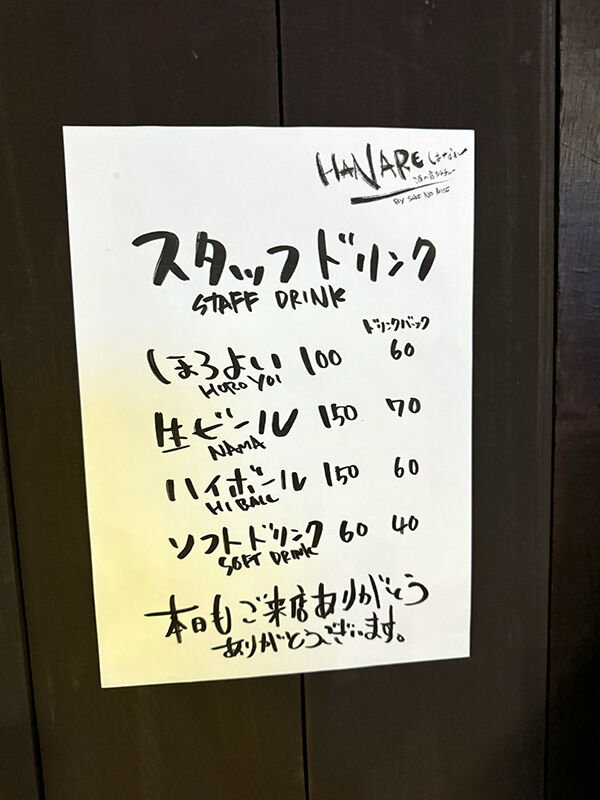 HANARE はなれ
BY SAKE NO
スタッフドリンク
STAFF DRINK
ドリンクバック
ほろよい 100 60
HOROYOI
生ビール 150 70
NAMA
ハイボール 150 60
HI BALL
ソフトドリンク 60 40
SOFT DRINK
本日もご来店ありがとう
ありがとうございます。